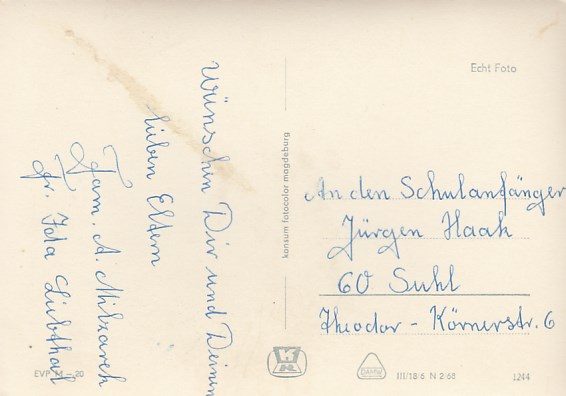 Wünschen Dir und Deinen
lieben Eltern
Fam. A.
Fr. Ida
EVP M –20
konsum fotocolor magdeburg
Echt Foto
An den Schulanfänger
Jürgen Haak
60 Suhl
Theodor - Körnerstr. 6
III/18/6 N 2/68
1244